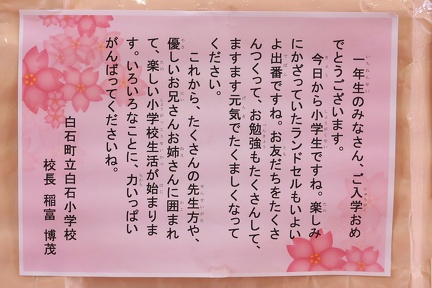 一年生のみなさん、ご入学おめ
でとうございます。
今日から小学生ですね。楽しみ
にかざっていたランドセルもいよい
よ出番ですね。お友だちをたくさ
んつくって、お勉強もたくさんして、
ますます元気でたくましくなって
ください。
これから、たくさんの先生方や、
優しいお兄さんお姉さんに囲まれ
て、楽しい小学校生活が始まりま
す。いろいろなことに、力いっぱい
がんばってくださいね。
白石町立白石小学校
校長 稲富 博茂